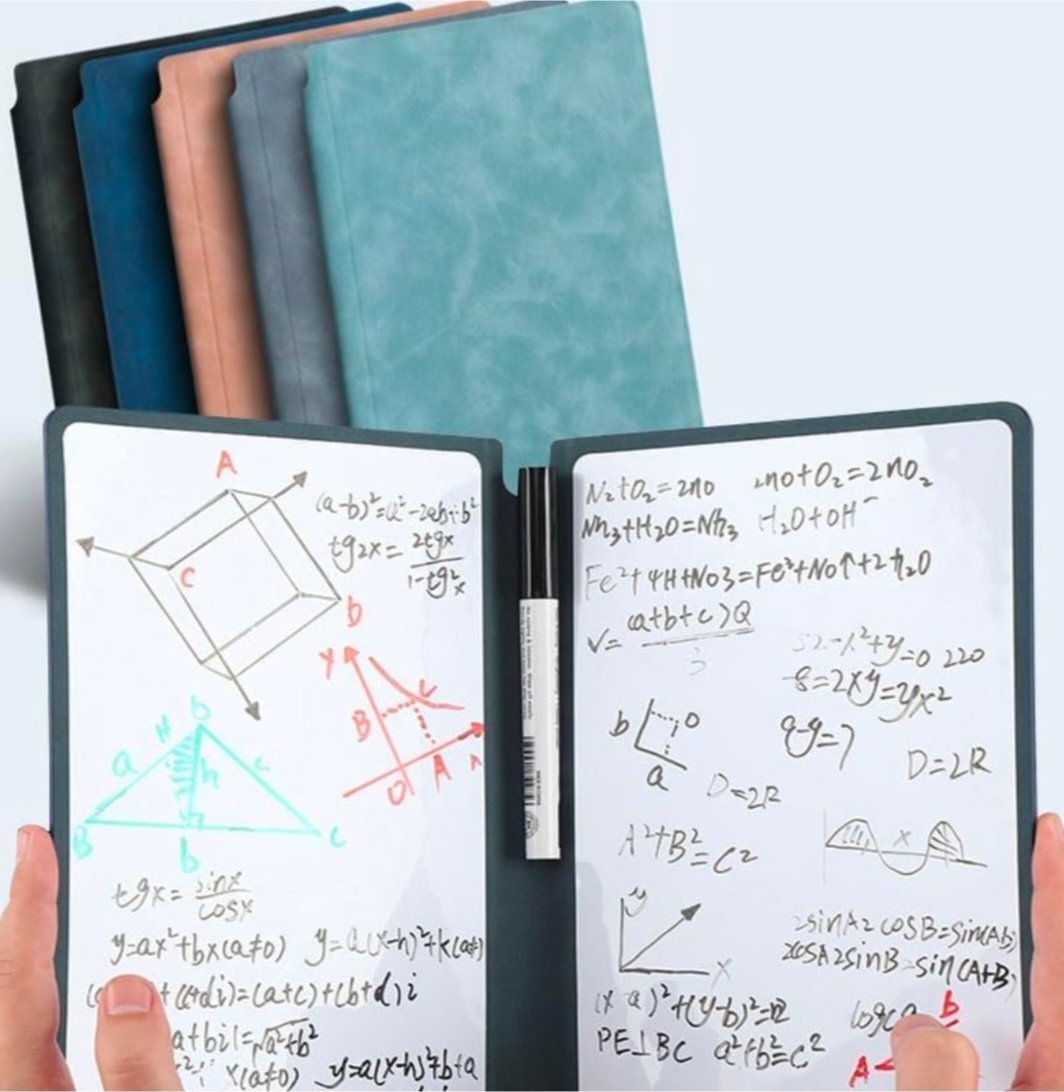 A
(a-b)²=a²-2ab+b²
tg2x= 2tgx
1-tg²x
C
b
Y
B
C
O A
b
H
a h c
B b C
tgx= sinx
cosx
y=ax²+bx(a≠0) y=a(x-h)²+k(a≠
+(c+di)=(a+c)+(b+d)i
a+bi|=√a²+b²
x(a≠0) y=a(x-h)²+b+a
N₂+O₂=2no 2no+O₂=2no₂
Nh₃+H₂O=Nh₃ H₂O+OH⁻
Fe²+4H+No3=Fe³+No↑+2h₂O
V= (a+b+c)Q
3
52-x²+y=0 220
-8=2xy=yx²
b o
a
D=2R
D=2R
A²+B²=C²
x
y
x
2sinA2cosB=sin(Ab)
2cosA2sinB=sin(A+B)
(x-a)²+(y-b)²=
logca b
PE⊥BC a²+b²=c²
A